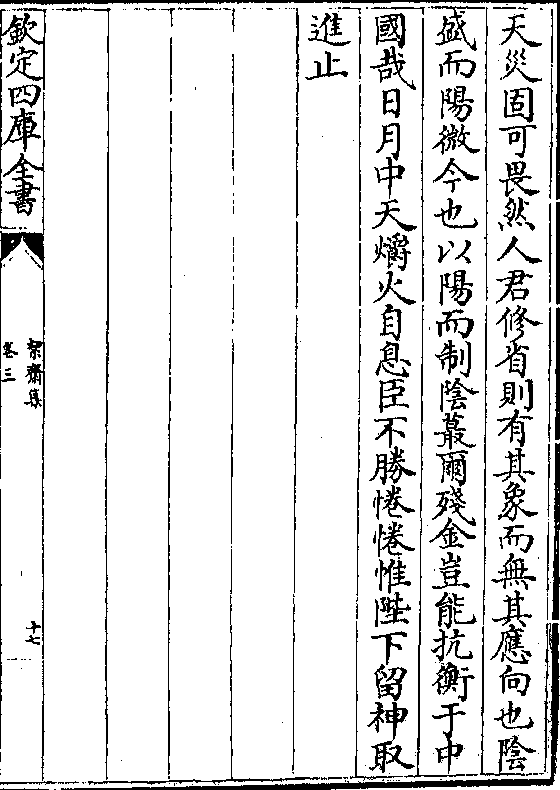 天災固可畏然人君修省則有其象而無其應向也陰
盛而陽微今也以陽而制陰蕞爾殘金豈能抗衡于中
國哉日月中天爝火自息臣不勝惓惓惟陛下留神取
進止
欽定四庫全書
絜齋集
卷三
十七